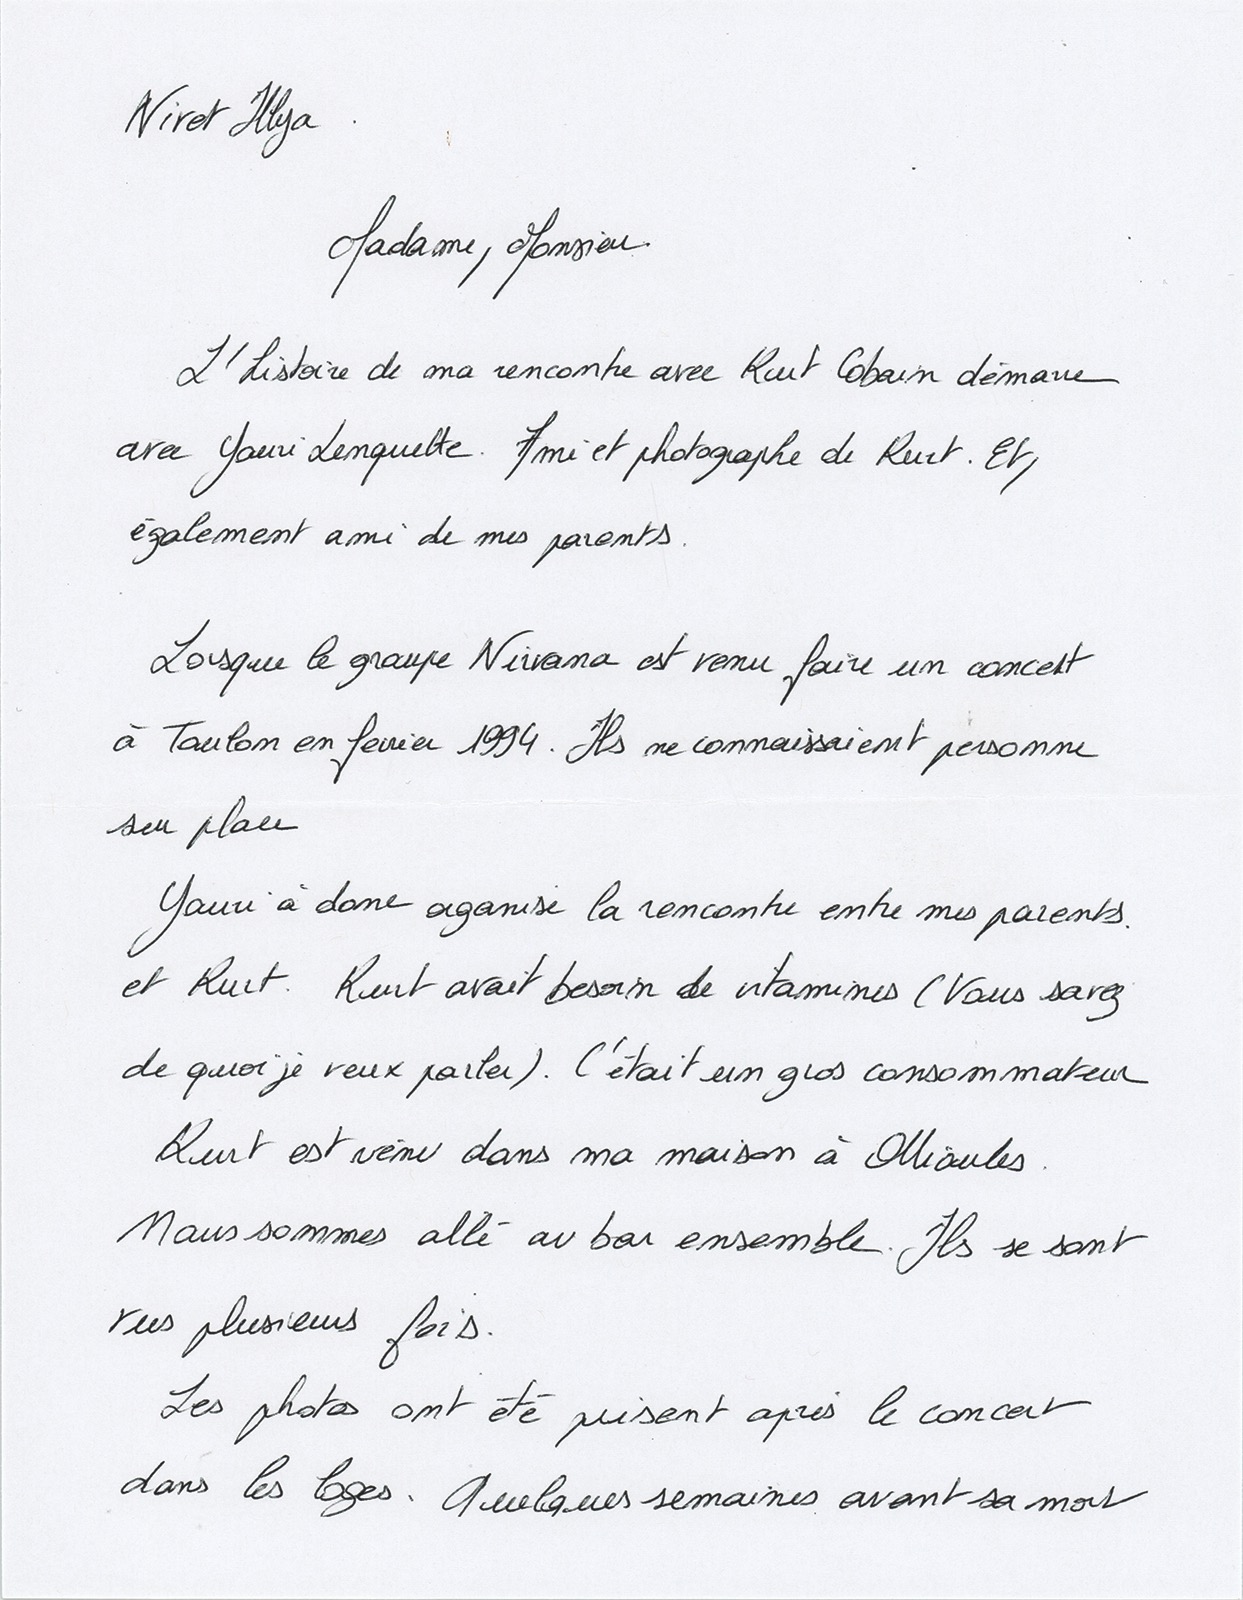 Niret Illya
Madame, Monsieur
L'histoire de ma rencontre avec Kurt Cobain démarre
avec Youri Lenquette. Ami et photographe de Kurt. Et,
également ami de mes parents.
Lorsque le groupe Nirvana est venu faire un concert
à Toulon en fevrier 1994. Ils ne connaissaient personne
sur place
Youri à donc organisé la rencontre entre mes parents.
et Kurt. Kurt avait besoin de vitamines (Vous savez
de quoi je veux parler). C'était un gros consommateur
Kurt est venu dans ma maison à Ollioules.
Nous sommes allé au bar ensemble. Ils se sont
vus plusieurs fois.
Les photos ont été prisent après le concert
dans les loges. Quelques semaines avant sa mort